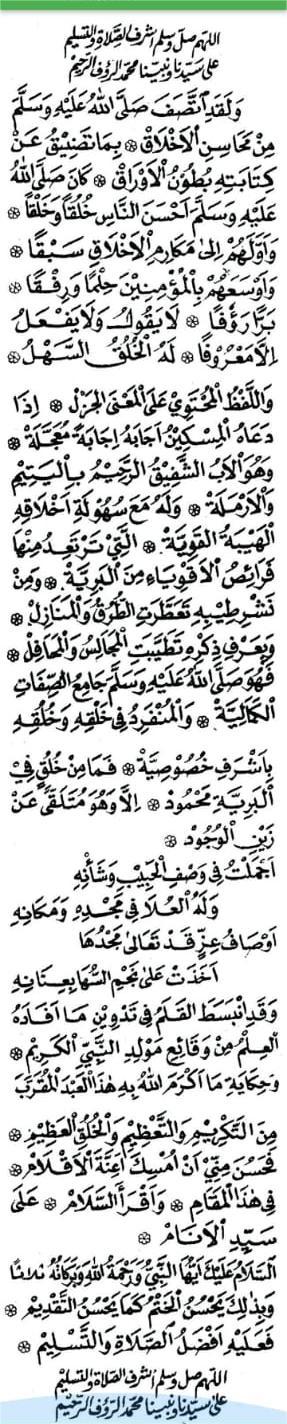 اللهم صل وسلم أشرف الصلاة والتسليم
على سيدنا ونبينا محمد الرؤوف الرحيم
وَلَقَدِ اتَّصَفَ صَلَّى اللهُ عَلَيْهِ وَسَلَّمَ
مِنْ مَحَاسِنِ الْأَخْلَاقِ ۞ بِمَا تَضِيْقُ عَنْ
كِتَابَتِهِ بُطُوْنُ الْأَوْرَاقِ ۞ كَانَ صَلَّى اللهُ
عَلَيْهِ وَسَلَّمَ أَحْسَنَ النَّاسِ خُلُقًا وَخَلْقًا ۞
وَأَوَّلَهُمْ إِلَى مَكَارِمِ الْأَخْلَاقِ سَبْقًا ۞
وَأَوْسَعَهُمْ بِالْمُؤْمِنِيْنَ حِلْمًا وَرِفْقًا ۞
بَرًّا رَؤُفًا ۞ لَا يَقُوْلُ وَلَا يَفْعَلُ
إِلَّا مَعْرُوْفًا ۞ لَهُ الْخُلُقُ السَّهْلُ ۞
وَاللَّفْظُ الْمُحْتَوِي عَلَى الْمَعْنَى الْجَزْلِ ۞ إِذَا
دَعَاهُ الْمِسْكِيْنُ أَجَابَهُ إِجَابَةً مُعَجَّلَةً ۞
وَهُوَ الْأَبُ الشَّفِيْقُ الرَّحِيْمُ بِالْيَتِيْمِ
وَالْأَرْمَلَةِ ۞ وَلَهُ مَعَ سُهُوْلَةِ أَخْلَاقِهِ
الْهَيْبَةُ الْقَوِيَّةُ ۞ الَّتِيْ تَرْتَعِدُ مِنْهَا
فَرَائِصُ الْأَقْوِيَاءِ مِنَ الْبَرِيَّةِ ۞ وَمِنْ
نَشْرِ طِيْبِهِ تَعَطَّرَتِ الطُّرُقُ وَالْمَنَازِلُ ۞
وَبِعَرْفِ ذِكْرِهِ تَطَيَّبَتِ الْمَجَالِسُ وَالْمَحَافِلُ ۞
فَهُوَ صَلَّى اللهُ عَلَيْهِ وَسَلَّمَ جَامِعُ الصِّفَاتِ
الْكَمَالِيَّةِ ۞ وَالْمُنْفَرِدُ فِي خَلْقِهِ وَخُلُقِهِ
بِأَشْرَفِ خُصُوْصِيَّةٍ ۞ فَمَا مِنْ خُلُقٍ فِيْ
الْبَرِيَّةِ مَحْمُوْدٍ ۞ إِلَّا وَهُوَ مُتَلَقًّى عَنْ
زَيْنِ الْوُجُوْدِ ۞
أَجْمَلْتُ فِي وَصْفِ الْحَبِيْبِ وَشَأْنِهِ
وَلَهُ الْعُلَا فِي مَجْدِهِ وَمَكَانِهِ
أَوْصَافُ عِزٍّ قَدْ تَعَالَى مَجْدُهَا
أَخَذَتْ عَلَى نَجْمِ السُّهَا بِعِنَانِهِ
وَقَدِ انْبَسَطَ الْقَلَمُ فِي تَدْوِيْنِ مَا أَفَادَهُ
الْعِلْمُ مِنْ وَقَائِعِ مَوْلِدِ النَّبِيِّ الْكَرِيْمِ ۞
وَحِكَايَةِ مَا أَكْرَمَ اللهُ بِهِ هٰذَا الْعَبْدَ الْمُقَرَّبَ
مِنَ التَّكْرِيْمِ وَالتَّعْظِيْمِ وَالْخُلُقِ الْعَظِيْمِ ۞
فَحَسُنَ مِنِّيْ أَنْ أُمْسِكَ أَعِنَّةَ الْأَقْلَامِ ۞
فِيْ هٰذَا الْمَقَامِ ۞ وَأَقْرَأَ السَّلَامَ ۞ عَلَى
سَيِّدِ الْأَنَامِ ۞
اَلسَّلَامُ عَلَيْكَ أَيُّهَا النَّبِيُّ وَرَحْمَةُ اللهِ وَبَرَكَاتُهُ ثلاثا
وَبِذٰلِكَ يَحْسُنُ الْخَتْمُ كَمَا يَحْسُنُ التَّقْدِيْمُ ۞
فَعَلَيْهِ أَفْضَلُ الصَّلَاةِ وَالتَّسْلِيْمِ ۞
اللهم صل وسلم أشرف الصلاة والتسليم
على سيدنا ونبينا محمد الرؤوف الرحيم